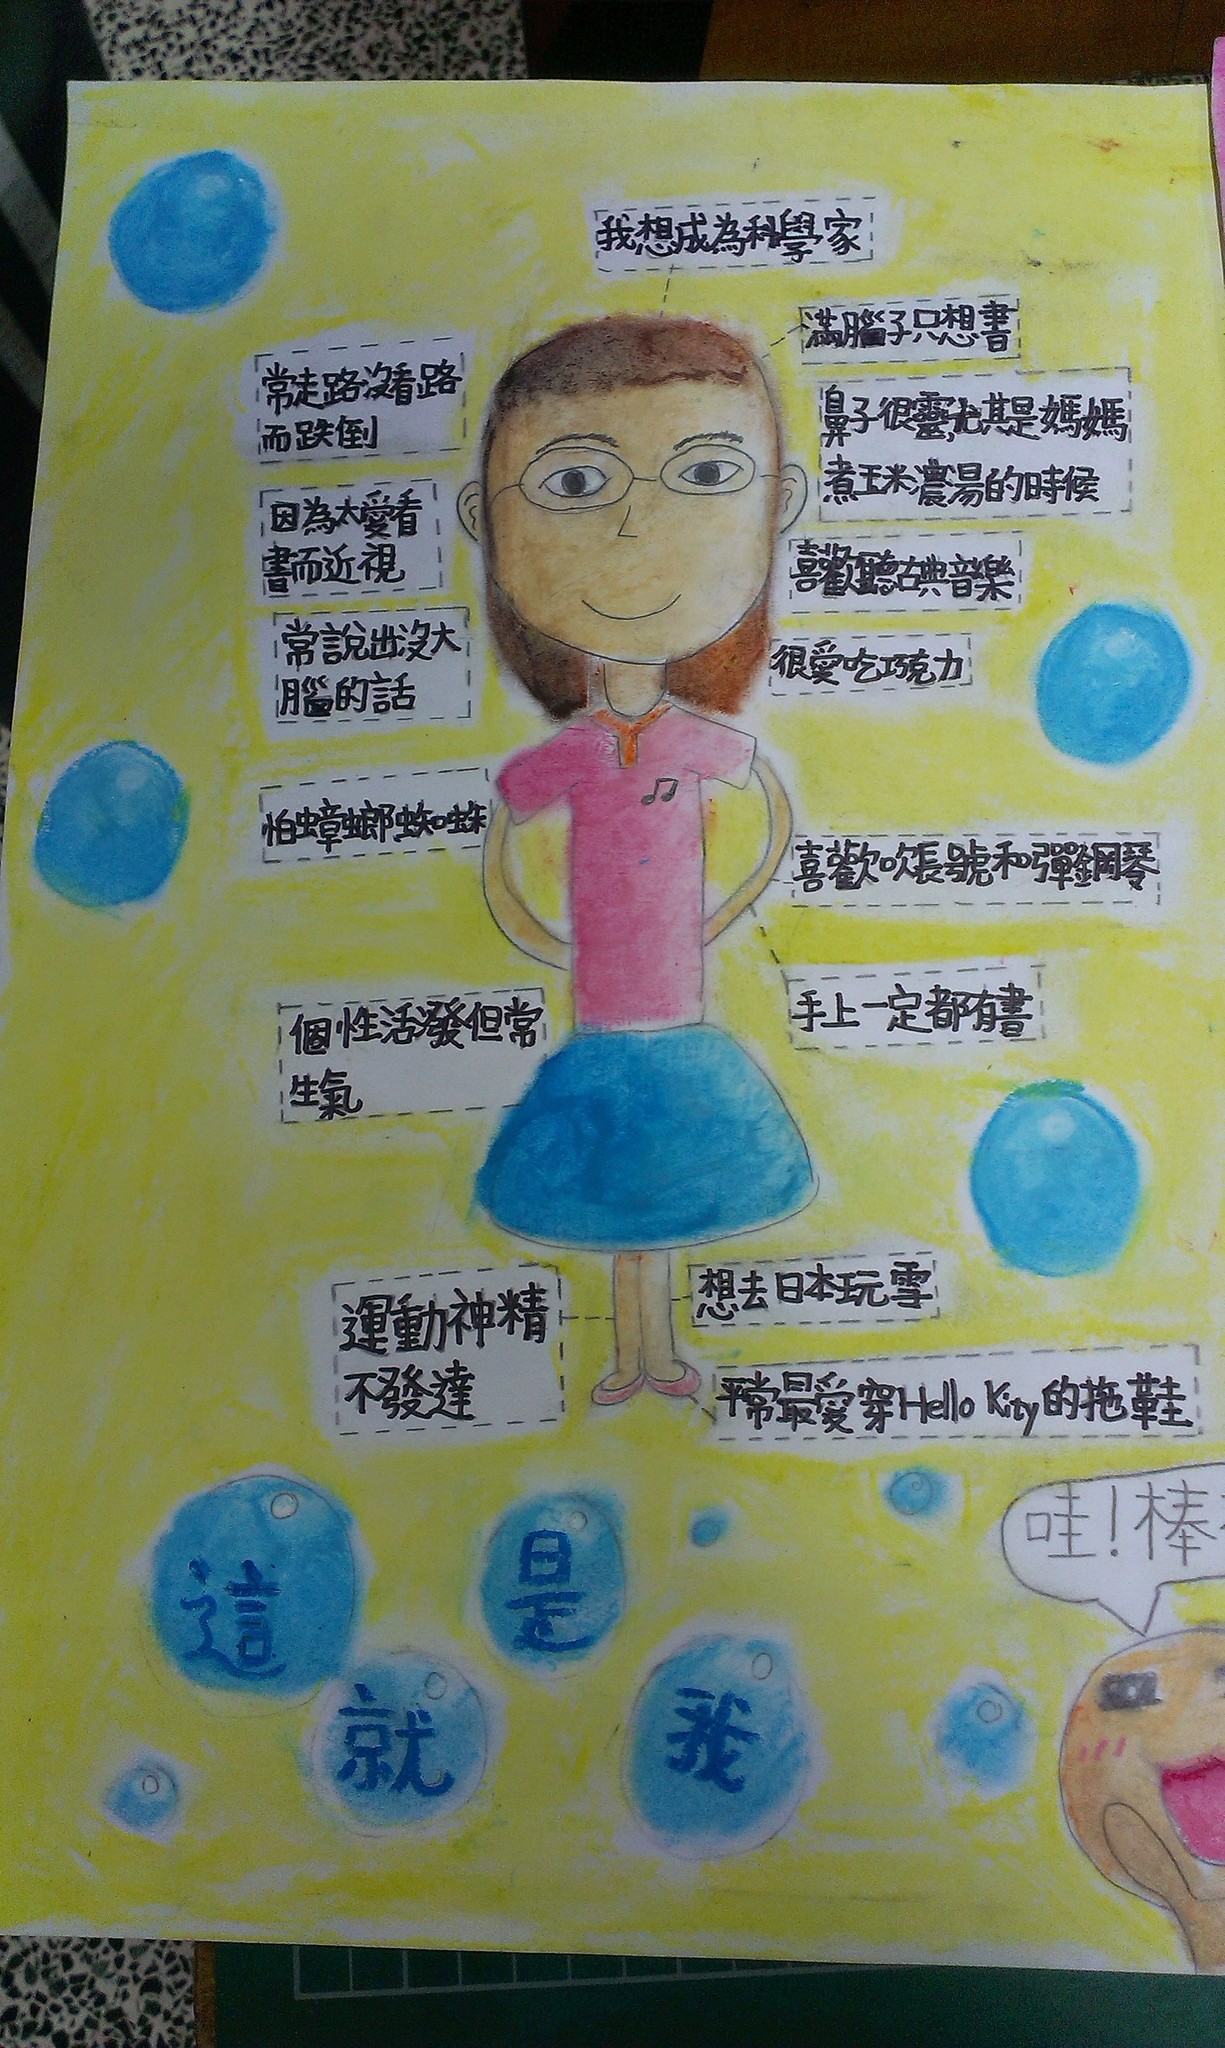 我想成為科學家
滿腦子只想書
常走路沒看路
而跌倒
鼻子很靈,尤其是媽媽
煮玉米濃湯的時候
因為太愛看
書而近視
喜歡聽古典音樂
常說出沒大
腦的話
很愛吃巧克力
怕蟑螂蜘蛛
喜歡吹長號和彈鋼琴
手上一定都有書
個性活潑但常
生氣
想去日本玩雪
運動神精
不發達
平常最愛穿Hello Kity的拖鞋
哇!棒
這就是我